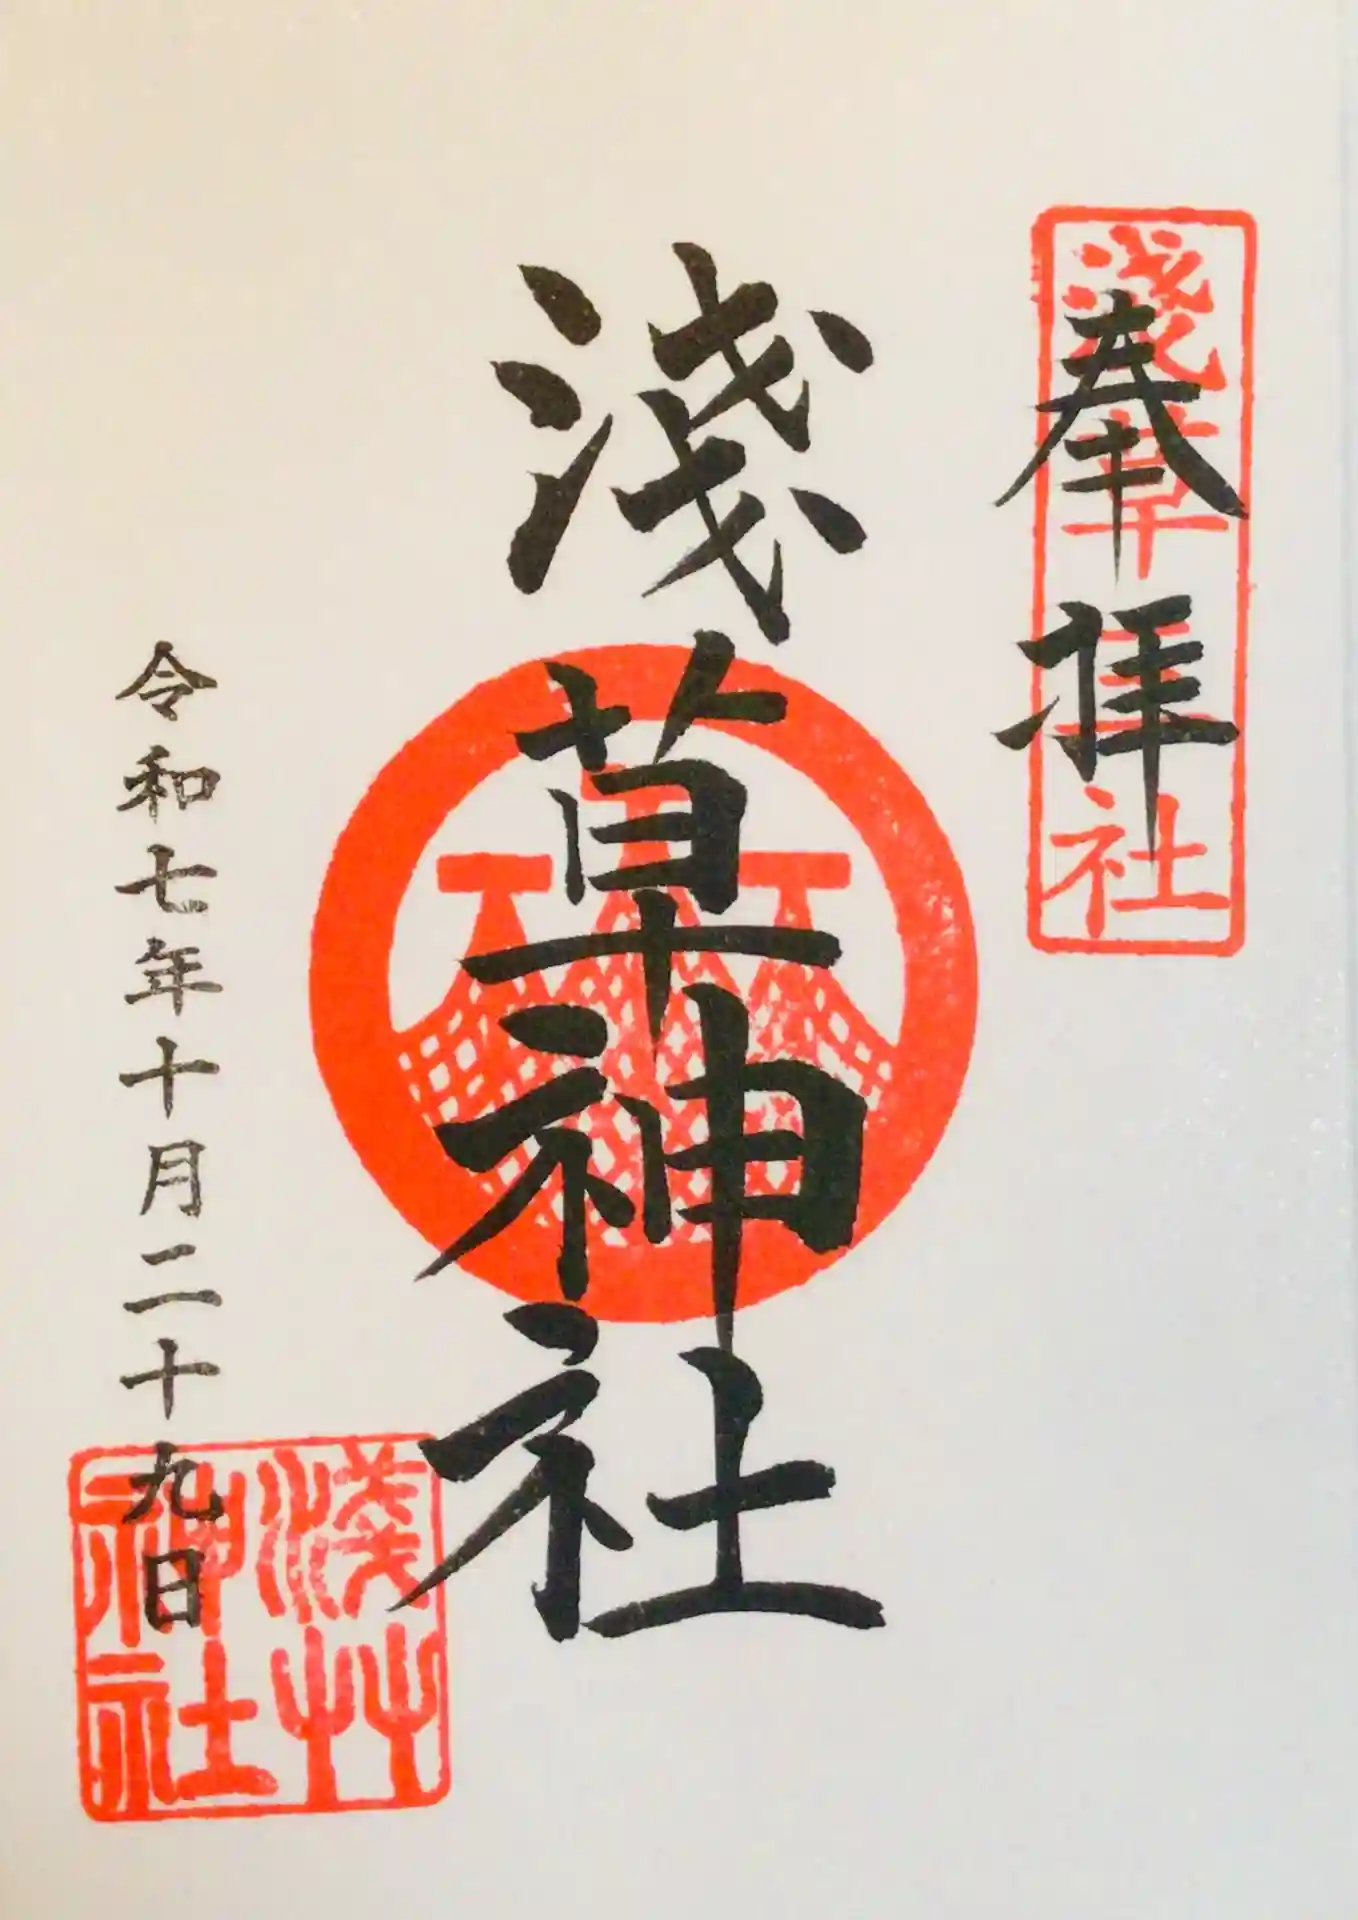 奉拝
淺草三社
淺草神社
令和七年十月二十九日
淺艸
神社